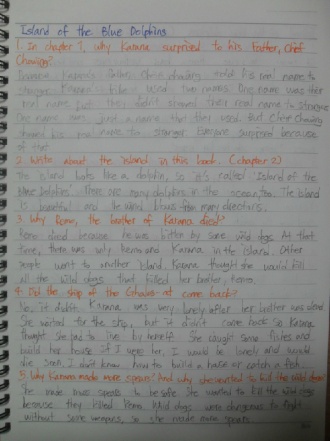 Island of the Blue Dolphins
1. In chapter 1, why Karana surprised to his father, Chief
Chowig?
Karana's father, Chief Chowig told his real name to
stranger. Karana tribe used two names. One name was their
real name but they didn't showed their real name to strange
One name was just a name that they used. But Chief Chowig
showed his real name to stranger. Everyone surprised because
of that.
2. Write about the island in this book. (chapter 2)
The island looks like a dolphin, so it's called 'Island of the
Blue Dolphins'. There are many dolphins in the ocean, too. The island
is beautiful and the wind blows from many directions.
3. Why Ramo, the brother of Karana died?
Ramo died because he was bitten by some wild dogs. At that
time, there was only Ramo and Karana in the island. Other
people went to another island. Karana thought she would kill
all the wild dogs that killed her brother, Ramo.
4. Did the ship of the come back?
No, it didn't. Karana was very lonely after her brother was dead.
She waited for the ship, but it didn't come back. So Karana
thought she had to live by herself. She caught some fishes and
build her house. If I were her, I would be lonely and would
die soon. I don't know how to build a house or catch a fish.
5. Why Karana made more spears? And why she wanted to kill the wild dogs?
She made more spears to be safe. She wanted to kill the wild dogs
because they killed Ramo. Wild dogs were dangerous to fight
without some weapons, so she made more spears.